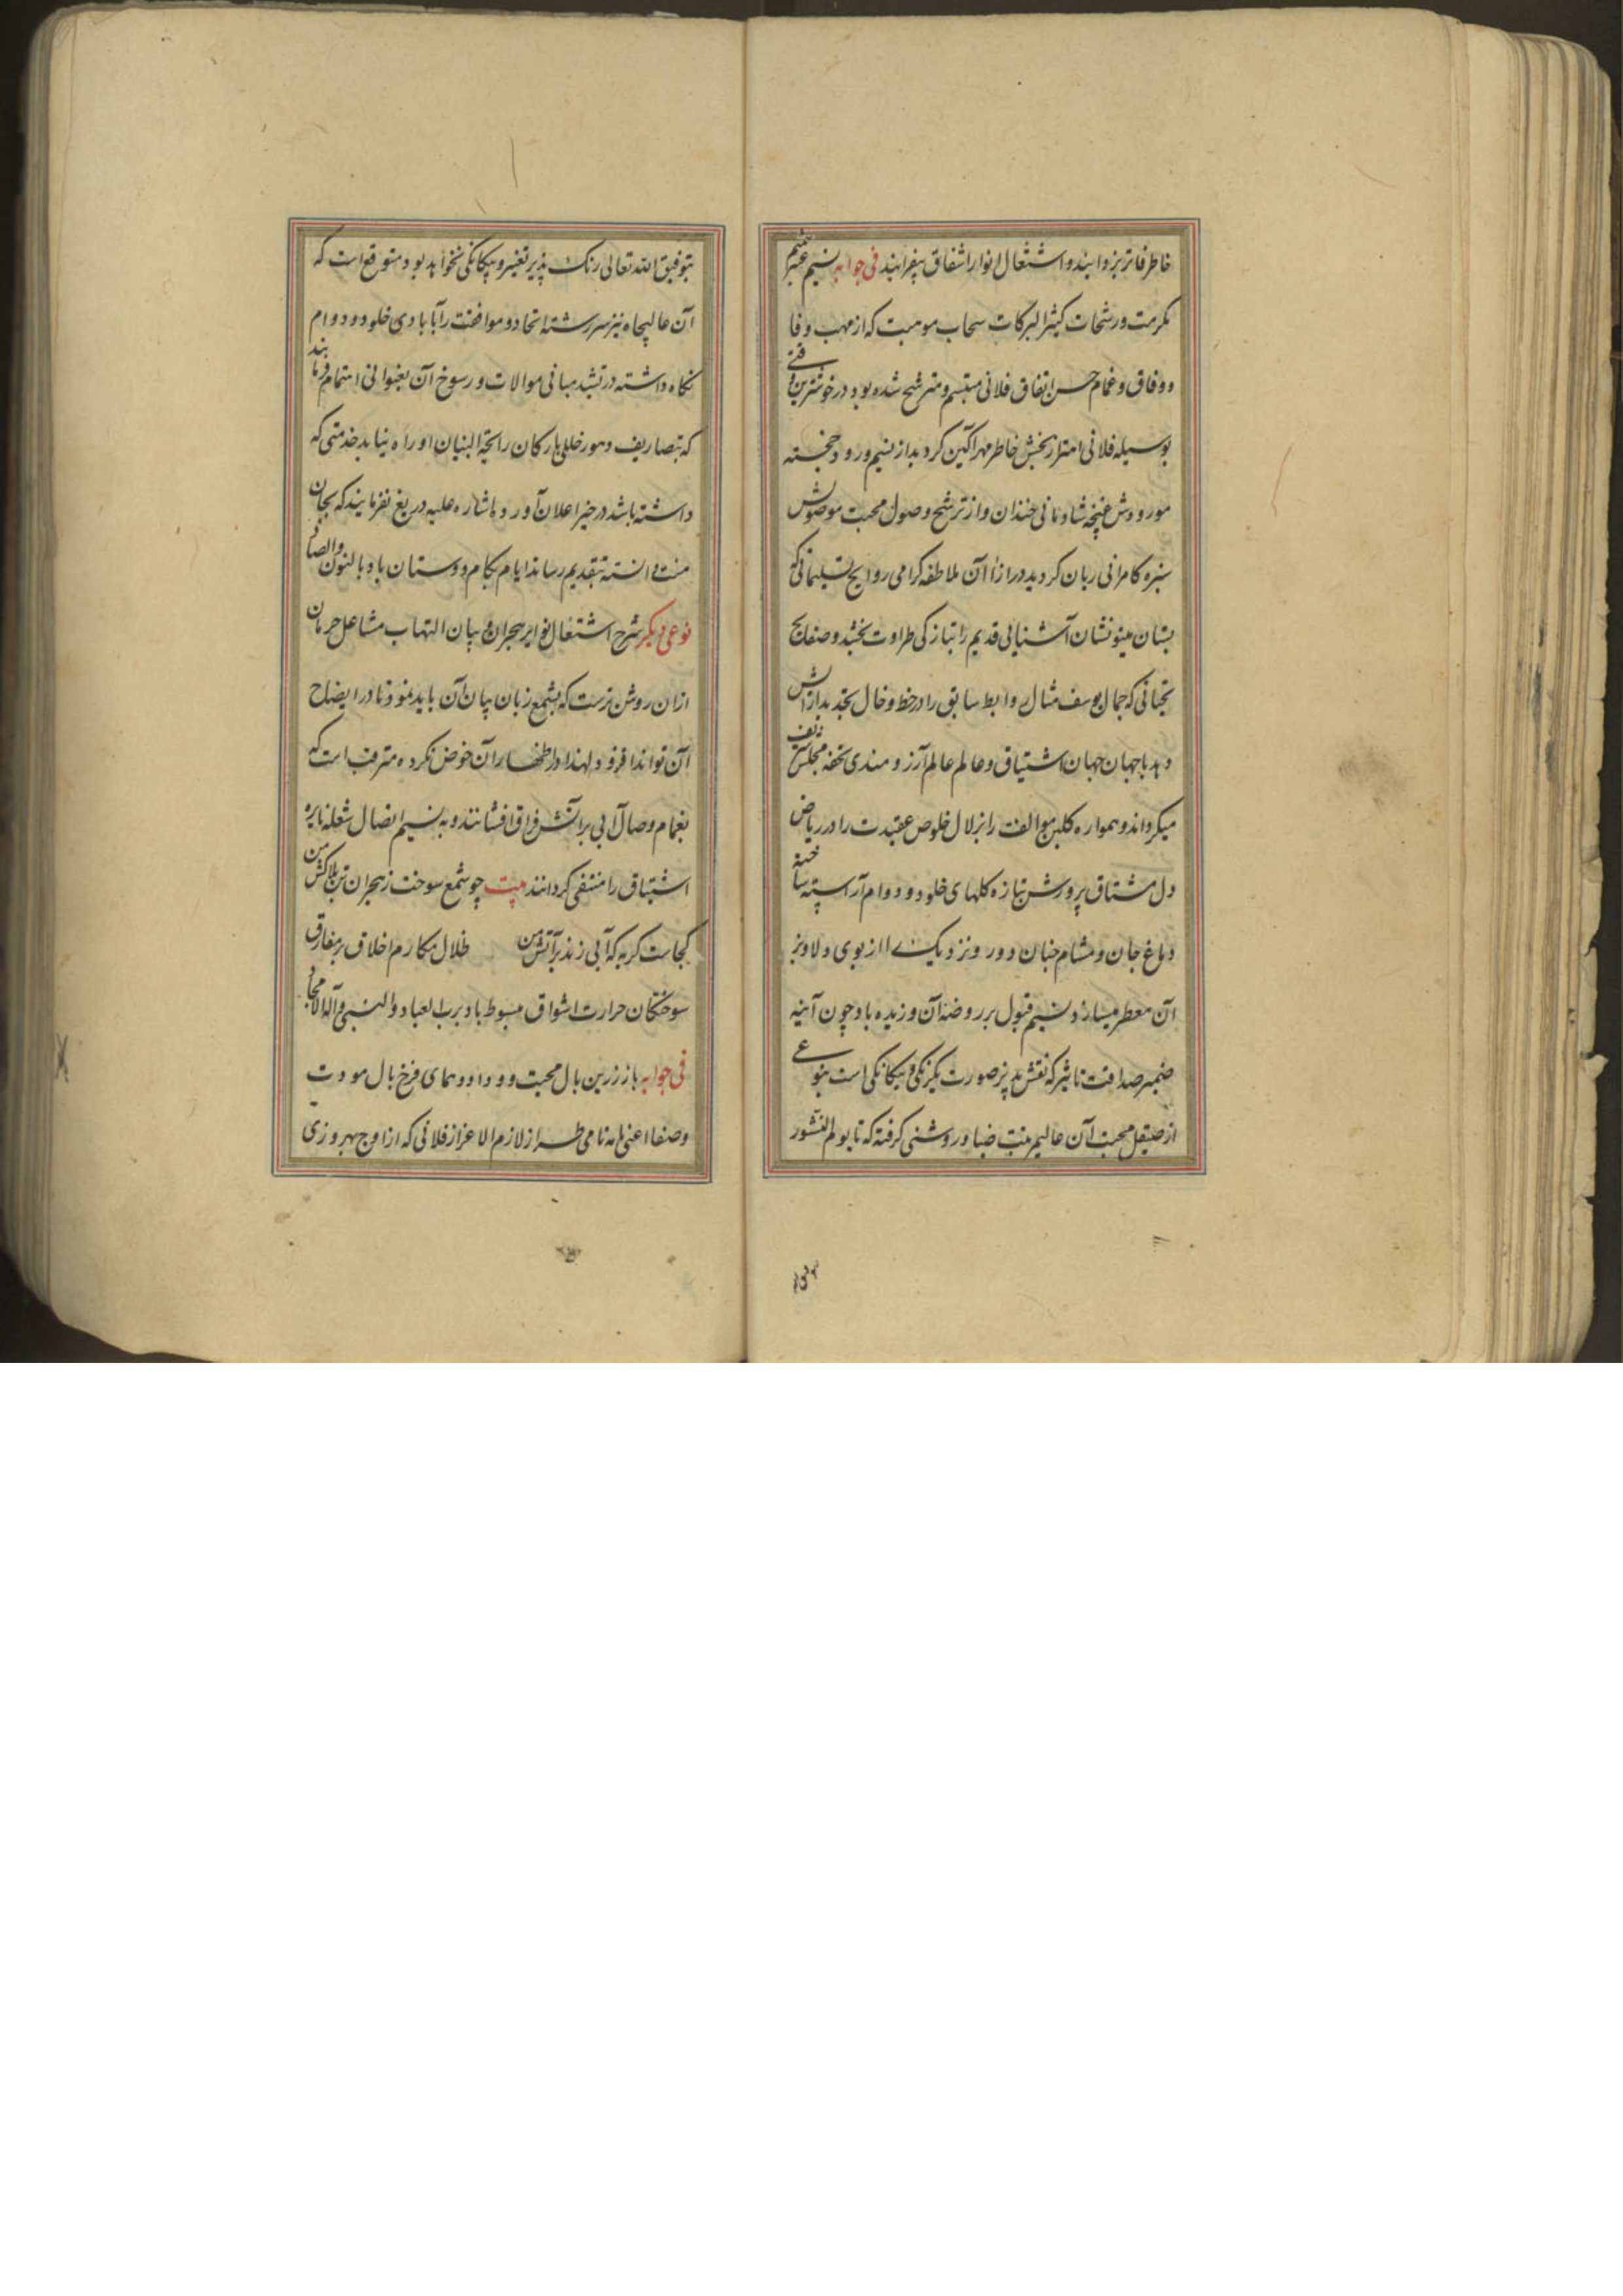 خاطر فاتر بزدایند و اشتعال انوار اشفاق بیفزایند فی جوابه نسیم عنبر شمیم
مکرمت و رشحات کثیر البرکات سحاب موهبت که از مهب وفا
و وفاق و غمام حسن اتفاق فلانی متبسم و مترشح شده بود در خوشترین وقتی
بوسیله فلانی اهتزاز بخش خاطر مهر آگین گردید از نسیم ورود خجسته
مورودش غنچه شادمانی خندان و از ترشح وصول محبت موصولش
سبزه کامرانی ریان گردید در ازاء آن ملاطفه گرامی روایح تسلیماتی که
بستان مینو نشان آشنائی قدیم را بتازگی طراوت بخشد و صفایح
تحیاتی که جمال یوسف مثال روابط سابق را در خط و خال تجدید آرایش
دهد با جهان جهان اشتیاق و عالم عالم آرزومندی تحفه مجلس شریف
میگرداند و همواره گلبن موالفت را بزلال خلوص عقیدت را در ریاض
دل مشتاق پرورش بتازه گلهای خلود و دوام آراسته ساخته
دماغ جان و مشام جنان دور و نزدیک را از بوی دلاویز
آن معطر میسازد نسیم قبول بر روضه آن وزیده باد چون آینه
ضمیر صداقت تاثیر که نقش پذیر صورت یکرنگی و یگانگی است بنوعی
از صیقل محبت آن عالیمرتبت ضیا و روشنی گرفته که تا یوم النشور
بتوفیق الله تعالی رنک پذیر تغییر و بیگانگی نخواهد بود متوقع است که
آن عالیجاه نیز سررشته اتحاد و موافقت را آبادی خلود و دوام
نگاه داشته در تشید مبانی موالات و رسوخ آن بعنوانی اهتمام فرمایند
که بتصاریف دهور خللی بارکان راسخة البنیان او راه نیابد خدمتی که
داشته باشد در حیز اعلان آورد باشاره علیه دریغ نفرمایند که بجان
منت دانسته بتقدیم رساند ایام بکام دوستان باد بالنون والصاد
نوعی دیگر شرح اشتعال نوایر هجران و بیان التهاب مشاعل حرمان
ازان روشن ترست که بشمع زبان بیان آن باید نمود تا در ایضاح
آن تواند افزود لهذا در اظهار آن خوض نکرده مترقب است که
بغمام وصال آبی بر آتش فراق افشانند و به نسیم اتصال شعله نایره
اشتیاق را منتفی گردانند بیت چو شمع سوخت ز هجران تن بلاکش من
کجاست گریه که آبی زند بر آتش من ظلال مکارم اخلاق بر مفارق
سوختگان حرارت اشواق مبسوط باد برب العباد والنبی و آله الامجاد
فی جوابه باز زرین بال محبت و وداد و همای فرخ بال مودت
و صفا اعنی نامه نامی طراز لازم الاعزاز فلانی که از اوج بهروزی